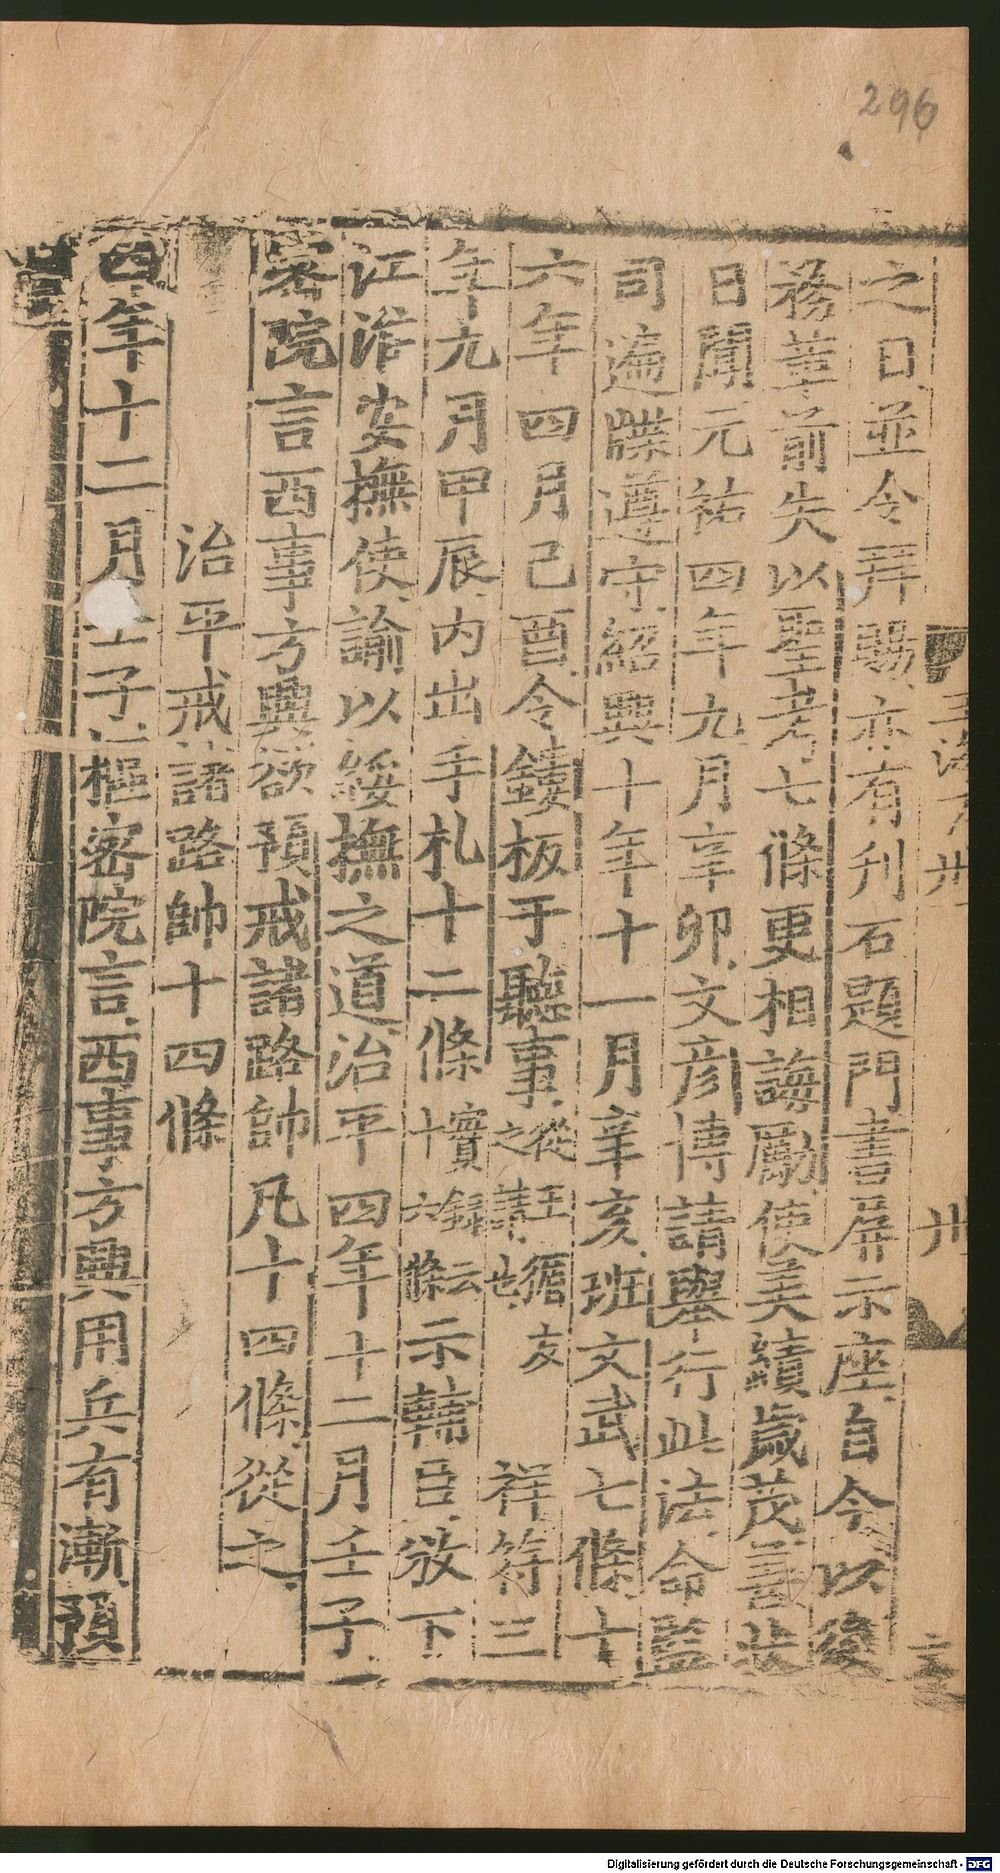 296
之日並令拜賜亦有刋石題門書屏示座自今以後
務革前失以聖考七條更相誨勵使美績歲茂善狀
日聞元祐四年九月辛卯文彥博請舉行此法命監
司遍牒遵守紹興十年十一月辛亥班文武七條十
六年四月己酉令鏤板于聽事從王循友之請也祥符三
年九月甲辰內出手札十二條實錄云十六條示輔臣傚下
江淮安撫使諭以綏撫之道治平四年十二月壬子
密院言西事方興欲預戒諸路帥凡十四條從之
治平戒諸路帥十四條
四年十二月壬子樞密院言西事方興用兵有漸預
Digitalisierung gefördert durch die Deutsche Forschungsgemeinschaft - DFG